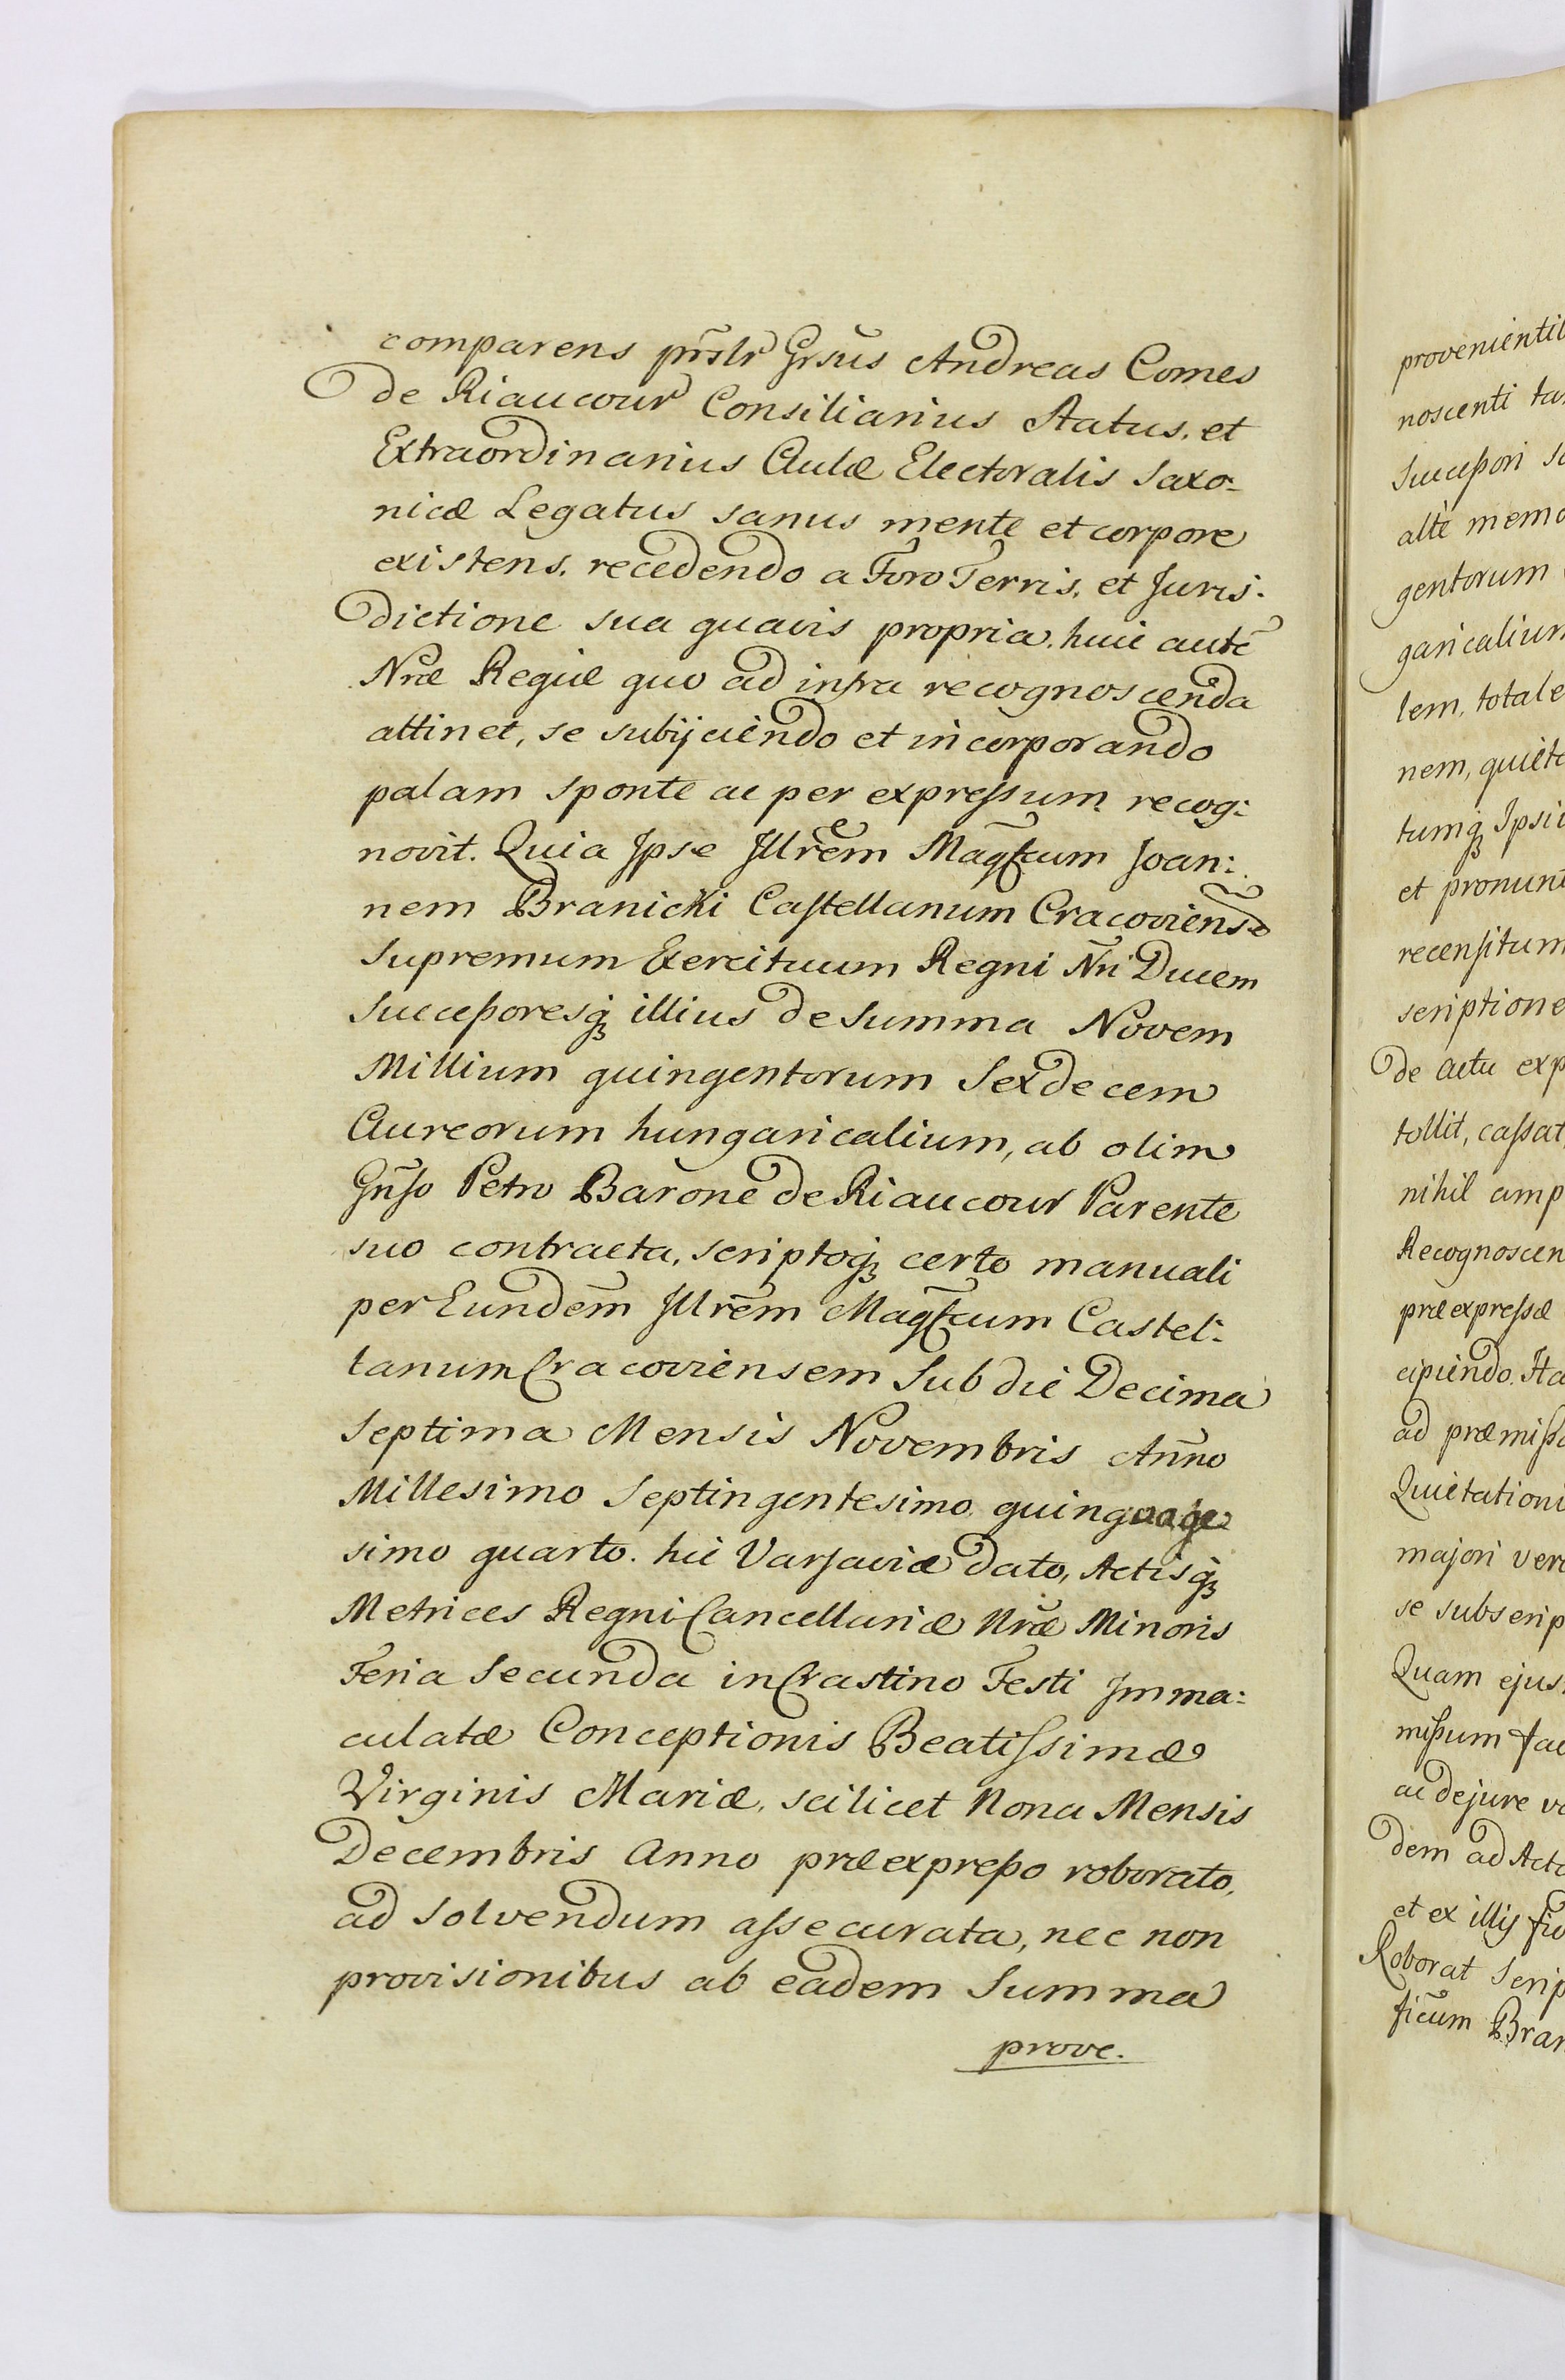 comparens prñslr Grsus Andreas Comes
de Riaucour Consiliarius Status, et
Extraordinarius Aulæ Electoralis Saxo-
nicæ Legatus sanus mente et corpore
existens, recedendo a Foro Terris, et Juris:
dictione sua quavis propria, huic autē
Nræ Regiæ quo ad infra recognoscenda
attinet, se subijciendo et incorporando
palam sponte ac per expressum recog:
novit. Quia Ipse Illrem Magfcum Joan:
nem Branicki Castellanum Cracoviensē
Supremum Exercituum Regni Nri Ducem
Successoresq; illius de Summa Novem
Millium quingentorum Sexdecem
Aureorum hungaricalium, ab olim
Gnso Petro Barone de Riaucour Parente
suo contracta, scriptoq; certo manuali
per Eundem Illrem Magfcum Castel:
lanum Cracoviensem Sub die Decima
Septima Mensis Novembris Anno
Millesimo Septingentesimo quinquage
simo quarto. hic Varsaviæ dato, Actisq;
Metrices Regni Cancellariæ Nræ Minoris
Feria Secunda in Crastino Festi Imma:
culatæ Conceptionis Beatissimæ
Virginis Mariæ, scilicet Nona Mensis
Decembris Anno præexpresso roborato,
ad Solvendum assecurata, nec non
provisionibus ab eadem Summa
prove.
provenientib
noscenti ta
Successori
alte memo
gentorum
garicalium
lem, totale
nem, quiet
tumq; Ipsi
et pronunt
recensitum
scriptione
de actu exp
tollit, cassat
nihil amp
Recognoscen
præexpressæ
cipiendo. Ita
ad præmiss
Quietationi
majori ver
se subscrip
Quam ejus
missum fac
ac de jure v
dem ad Acta
et ex illis
Roborat Scrip
ficum Bran